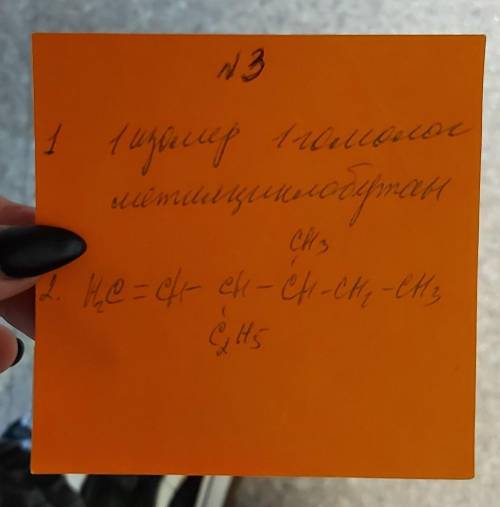 №3
1 1 изомер 1 гомолог
метилциклобутан
CH3
2. H2C = CH - CH - CH - CH2 - CH3
C2H5